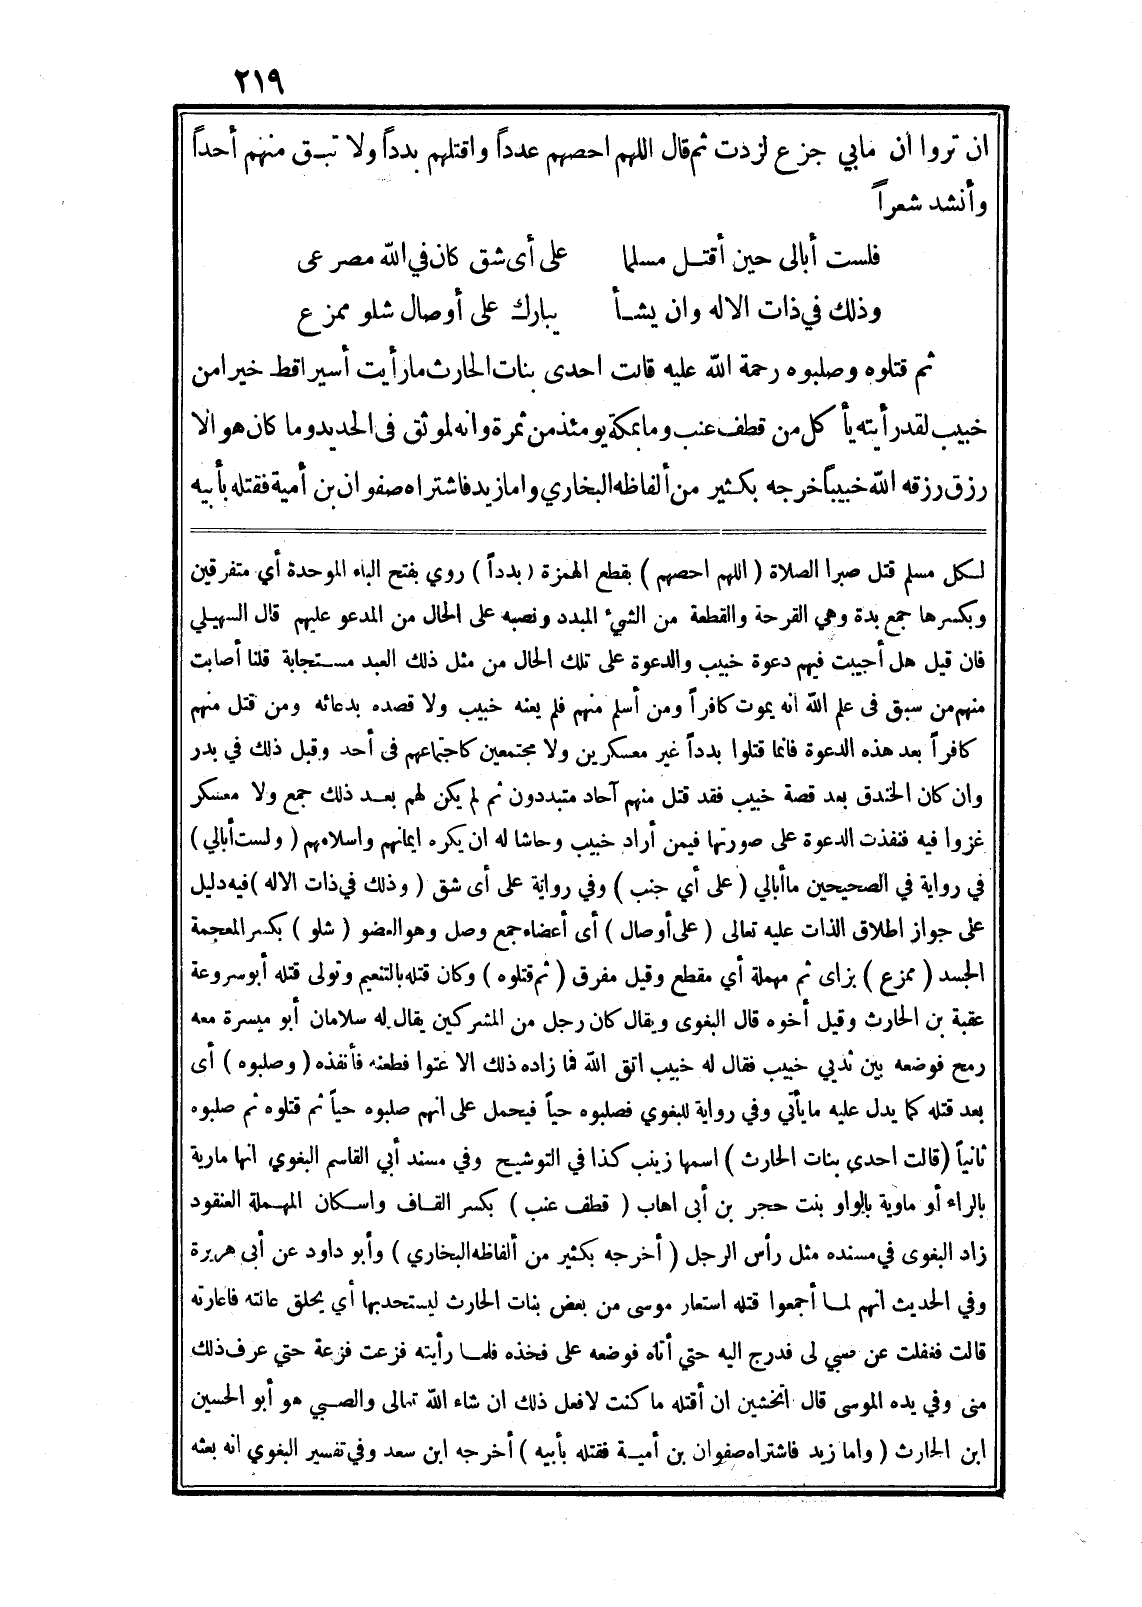 ٢١٩
ان تروا ان مابي جزع لزدت ثم قال اللهم احصهم عدداً واقتلهم بدداً ولا تبق منهم أحداً
وأنشد شعراً
فلست أبالى حين أقتل مسلما على أى شق كان في الله مصرعى
وذلك في ذات الاله وان يشأ يبارك على أوصال شلو ممزع
ثم قتلوه وصلبوه رحمة الله عليه قالت احدى بنات الحارث مارأيت أسيرا قط خيرا من
خبيب لقد رأيته يأكل من قطف عنب وما بمكة يومئذ من ثمرة وانه لموثق فى الحديد وما كان هو الا
رزق رزقه الله خبيباً خرجه بكثير من ألفاظه البخاري واما زيد فاشتراه صفوان بن أمية فقتله بأبيه
لكل مسلم قتل صبرا الصلاة ( اللهم احصهم ) بقطع الهمزة ( بدداً ) روي بفتح الباء الموحدة أي متفرقين
وبكسرها جمع بدة وهي القرحة والقطعة من الشيء المبدد ونصبه على الحال من المدعو عليهم قال السهيلي
فان قيل هل أجيبت فيهم دعوة خبيب والدعوة على تلك الحال من مثل ذلك العبد مستجابة قلنا أصابت
منهم من سبق فى علم الله انه يموت كافراً ومن أسلم منهم فلم يعنه خبيب ولا قصده بدعائه ومن قتل منهم
كافراً بعد هذه الدعوة فانما قتلوا بدداً غير معسكرين ولا مجتمعين كاجتماعهم فى أحد وقبل ذلك في بدر
وان كان الخندق بعد قصة خبيب فقد قتل منهم آحاد متبددون ثم لم يكن لهم بعد ذلك جمع ولا معسكر
غزوا فيه فنفذت الدعوة على صورتها فيمن أراد خبيب وحاشا له ان يكره ايمانهم واسلامهم ( ولست أبالي )
في رواية في الصحيحين ما أبالي ( على أي جنب ) وفي رواية على أى شق ( وذلك في ذات الاله ) فيه دليل
على جواز اطلاق الذات عليه تعالى ( على أوصال ) أى أعضاء جمع وصل وهو العضو ( شلو ) بكسر المعجمة
الجسد ( ممزع ) بزاى ثم مهملة أي مقطع وقيل مفرق ( ثم قتلوه ) وكان قتله بالتنعيم وتولى قتله أبو سروعة
عقبة بن الحارث وقيل أخوه قال البغوى ويقال كان رجل من المشركين يقال له سلامان أبو ميسرة معه
رمح فوضعه بين ثديي خبيب فقال له خبيب اتق الله فما زاده ذلك الا عتوا فطعنه فأنفذه ( وصلبوه ) أى
بعد قتله كما يدل عليه ما يأتي وفي رواية للبغوي فصلبوه حياً فيحمل على انهم صلبوه حياً ثم قتلوه ثم صلبوه
ثانياً ( قالت احدى بنات الحارث ) اسمها زينب كذا في التوشيح وفي مسند أبي القاسم البغوي انها مارية
بالراء أو ماوية بالواو بنت حجر بن أبى اهاب ( قطف عنب ) بكسر القاف واسكان المهملة العنقود
زاد البغوى في مسنده مثل رأس الرجل ( أخرجه بكثير من ألفاظه البخاري ) وأبو داود عن أبى هريرة
وفي الحديث انهم لما أجمعوا قتله استعار موسى من بعض بنات الحارث ليستحد بها أي يحلق عانته فاعارته
قالت فغفلت عن صبي لى فدرج اليه حتي أتاه فوضعه على فخذه فلما رأيته فزعت فزعة حتي عرف ذلك
منى وفي يده الموسى قال اتخشين ان أقتله ما كنت لافعل ذلك ان شاء الله تعالى والصبي هو أبو الحسين
ابن الحارث ( واما زيد فاشتراه صفوان بن أمية فقتله بأبيه ) أخرجه ابن سعد وفي تفسير البغوي انه بعثه